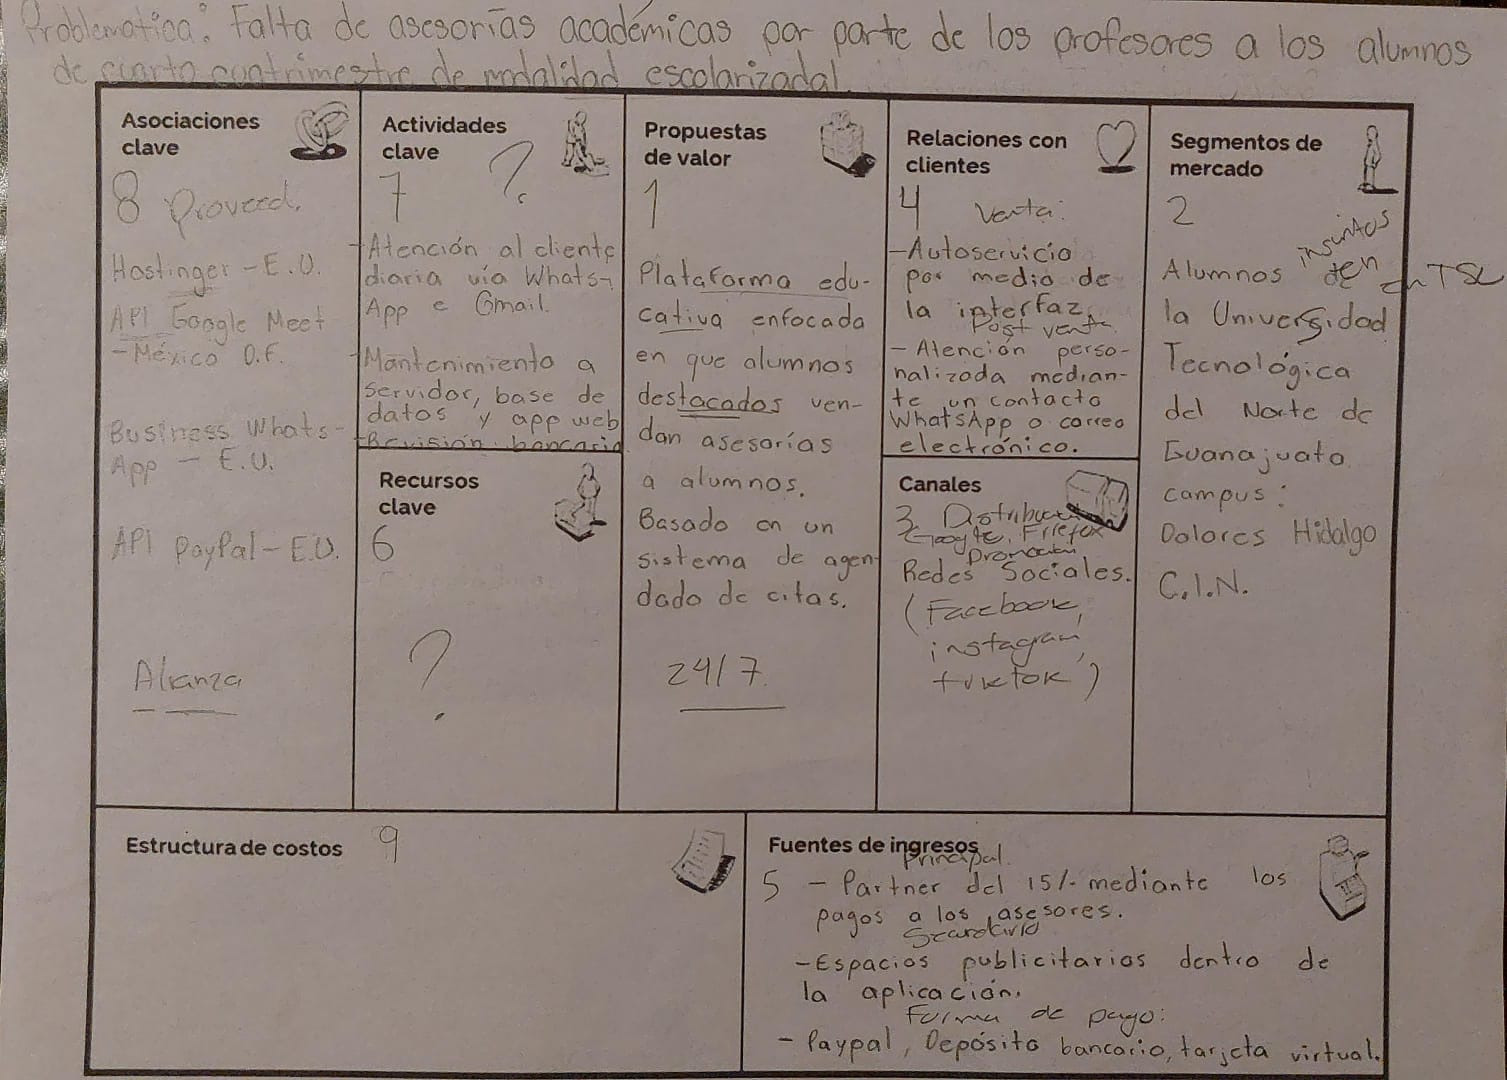 Problematica: Falta de asesorías académicas por parte de los profesores a los alumnos
de cuarto cuatrimestre de modalidad escolarizada.
Asociaciones
clave
8 Proveed.
Hostinger - E.U.
API Google Meet
- México D.F.
Business Whats-
App - E.U.
API PayPal - E.U.
Alianza
Actividades
clave
7 ?
- Atención al cliente
diaria vía Whats-
App e Gmail.
- Mantenimiento a
servidor, base de
datos y app web
- Revisión bancaria
Recursos
clave
6
?
Propuestas
de valor
1
Plataforma edu-
cativa enfocada
en que alumnos
destacados ven-
dan asesorías
a alumnos.
Basado en un
sistema de agen-
dado de citas.
24/7
Relaciones con
clientes
4 Venta:
- Autoservicio
por medio de
la interfaz.
Post venta
- Atención perso-
nalizada median-
te un contacto
WhatsApp o correo
electrónico.
Canales
3
Promoción
Redes Sociales.
(Facebook,
instagram,
tiktok)
Segmentos de
mercado
2
Alumnos inscritos de en TSU
la Universidad
Tecnológica
del Norte de
Guanajuato
campus:
Dolores Hidalgo
C.I.N.
Estructura de costos 9
Fuentes de ingresos
Principal
5 - Partner del 15% mediante los
pagos a los asesores.
Secundario
- Espacios publicitarios dentro de
la aplicación.
Forma de pago:
- Paypal, Depósito bancario, tarjeta virtual.